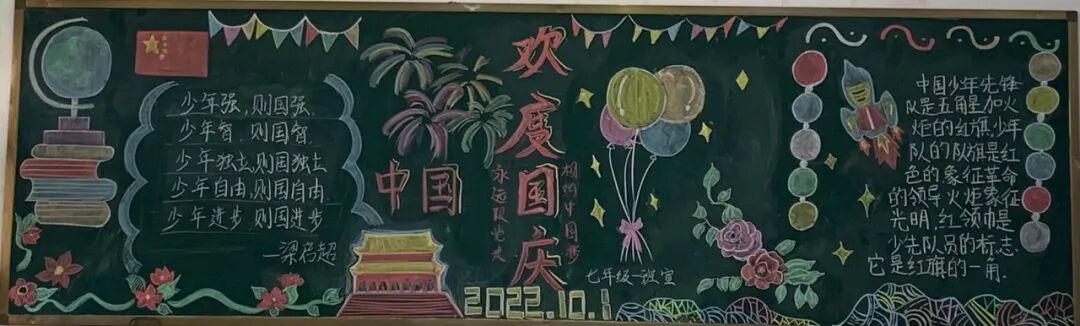 少年强，则国强，
少年智，则国智，
少年独立，则国独立
少年自由，则国自由，
少年进步，则国进步
—梁启超
中国
欢度国庆
永远跟党走
相约中国梦
七年级一班宣
2022.10.1
中国少年先锋
队是五角星加火
炬的红旗，少年
队的队旗是红
色的象征革命
的领导，火炬象征
光明，红领巾是
少先队员的标志
它是红旗的一角.